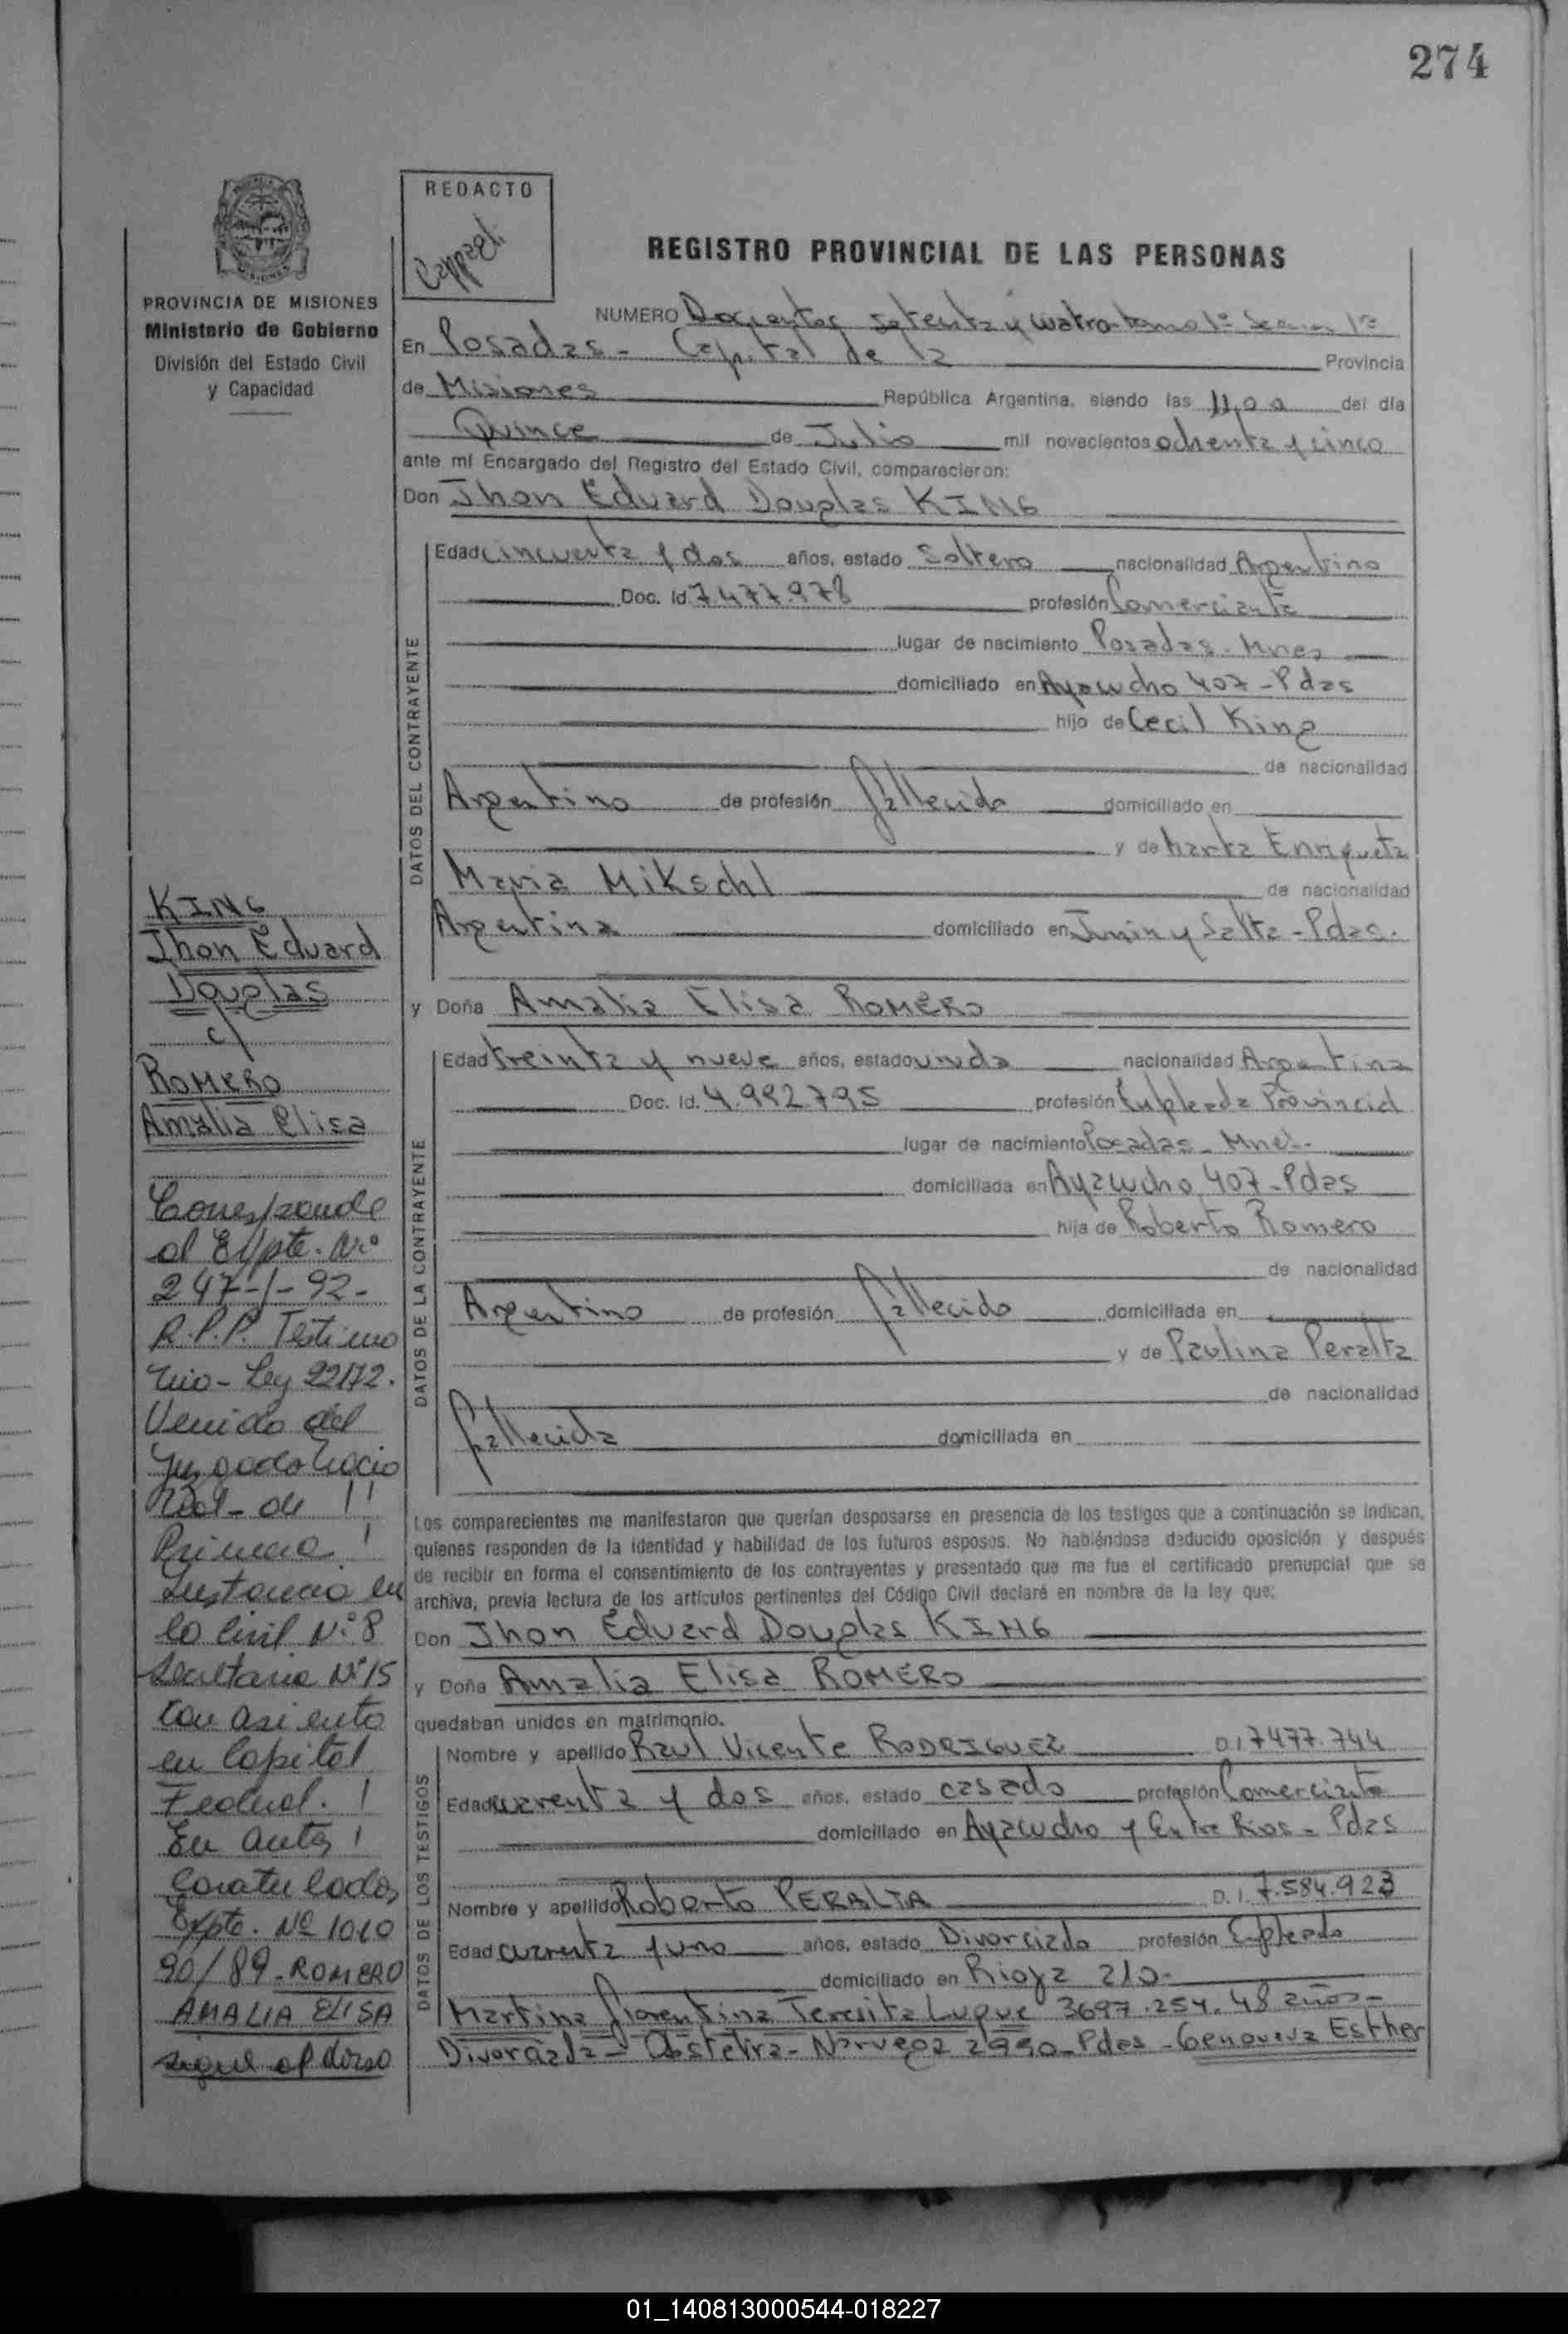 274
REDACTO
REGISTRO PROVINCIAL DE LAS PERSONAS
PROVINCIA DE MISIONES
Ministerio de Gobierno
División del Estado Civil
y Capacidad
KING
Jhon Eduard
Douglas
c/
ROMERO
Amalia Elisa
Corresponde
al Expte. Nº
247-/-92-
R.P.P. Testimo
nio- Ley 22172.
Venido del
Juzgado Nacio
nal- de
Primera
Instancia en
lo Civil Nº 8
Secretaria Nº 15
con asiento
en Capital
Federal.
En autos
Caratulados
Expte. Nº 1010
90/89-ROMERO
AMALIA ELISA
sigue al dorso
NUMERO Docientos setenta y cuatro-tomo 1º
En Posadas- Capital de la Provincia
de Misiones República Argentina, siendo las 11,00 del día
Quince de Julio mil novecientos ochenta y cinco
ante mí Encargado del Registro del Estado Civil, comparecieron:
Don Jhon Eduard Douglas KING
DATOS DEL CONTRAYENTE
Edad cincuenta y dos años, estado Soltero nacionalidad Argentino
Doc. Id. 7.477.978 profesión Comerciante
lugar de nacimiento Posadas- Mnes
domiciliado en Ayacucho 407-Pdas
hijo de Cecil King
de nacionalidad
Argentino de profesión fallecido domiciliado en
y de Marta Enriqueta
Maria Mikschl de nacionalidad
Argentina domiciliado en Junin y Salta-Pdas.
y Doña Amalia Elisa ROMERO
DATOS DE LA CONTRAYENTE
Edad treinta y nueve años, estado viuda nacionalidad Argentina
Doc. Id. 4.992.795 profesión Empleada Provincial
lugar de nacimiento Posadas- Mnes.
domiciliada en Ayacucho 407-Pdas
hija de Roberto Romero
de nacionalidad
Argentino de profesión fallecido domiciliada en
y de Paulina Peralta
de nacionalidad
fallecida domiciliada en
Los comparecientes me manifestaron que querían desposarse en presencia de los testigos que a continuación se indican,
quienes responden de la identidad y habilidad de los futuros esposos. No habiéndose deducido oposición y después
de recibir en forma el consentimiento de los contrayentes y presentado que me fue el certificado prenupcial que se
archiva, previa lectura de los artículos pertinentes del Código Civil declaré en nombre de la ley que:
Don Jhon Eduard Douglas KING
y Doña Amalia Elisa ROMERO
quedaban unidos en matrimonio.
DATOS DE LOS TESTIGOS
Nombre y apellido Raul Vicente RODRIGUEZ D.I 7477.744
Edad cuarenta y dos años, estado casado profesión Comerciante
domiciliado en Ayacucho y Entre Rios- Pdas
Nombre y apellido Roberto PERALTA D.I. 7.584.923
Edad cuarenta y uno años, estado Divorciado profesión Empleado
domiciliado en Rioja 210-
Martina Florentina Teresita Luque 3697.254. 48 años-
Divorciada- Obstetra- Noruega 2990-Pdas -Genoveva Esther
01_140813000544-018227